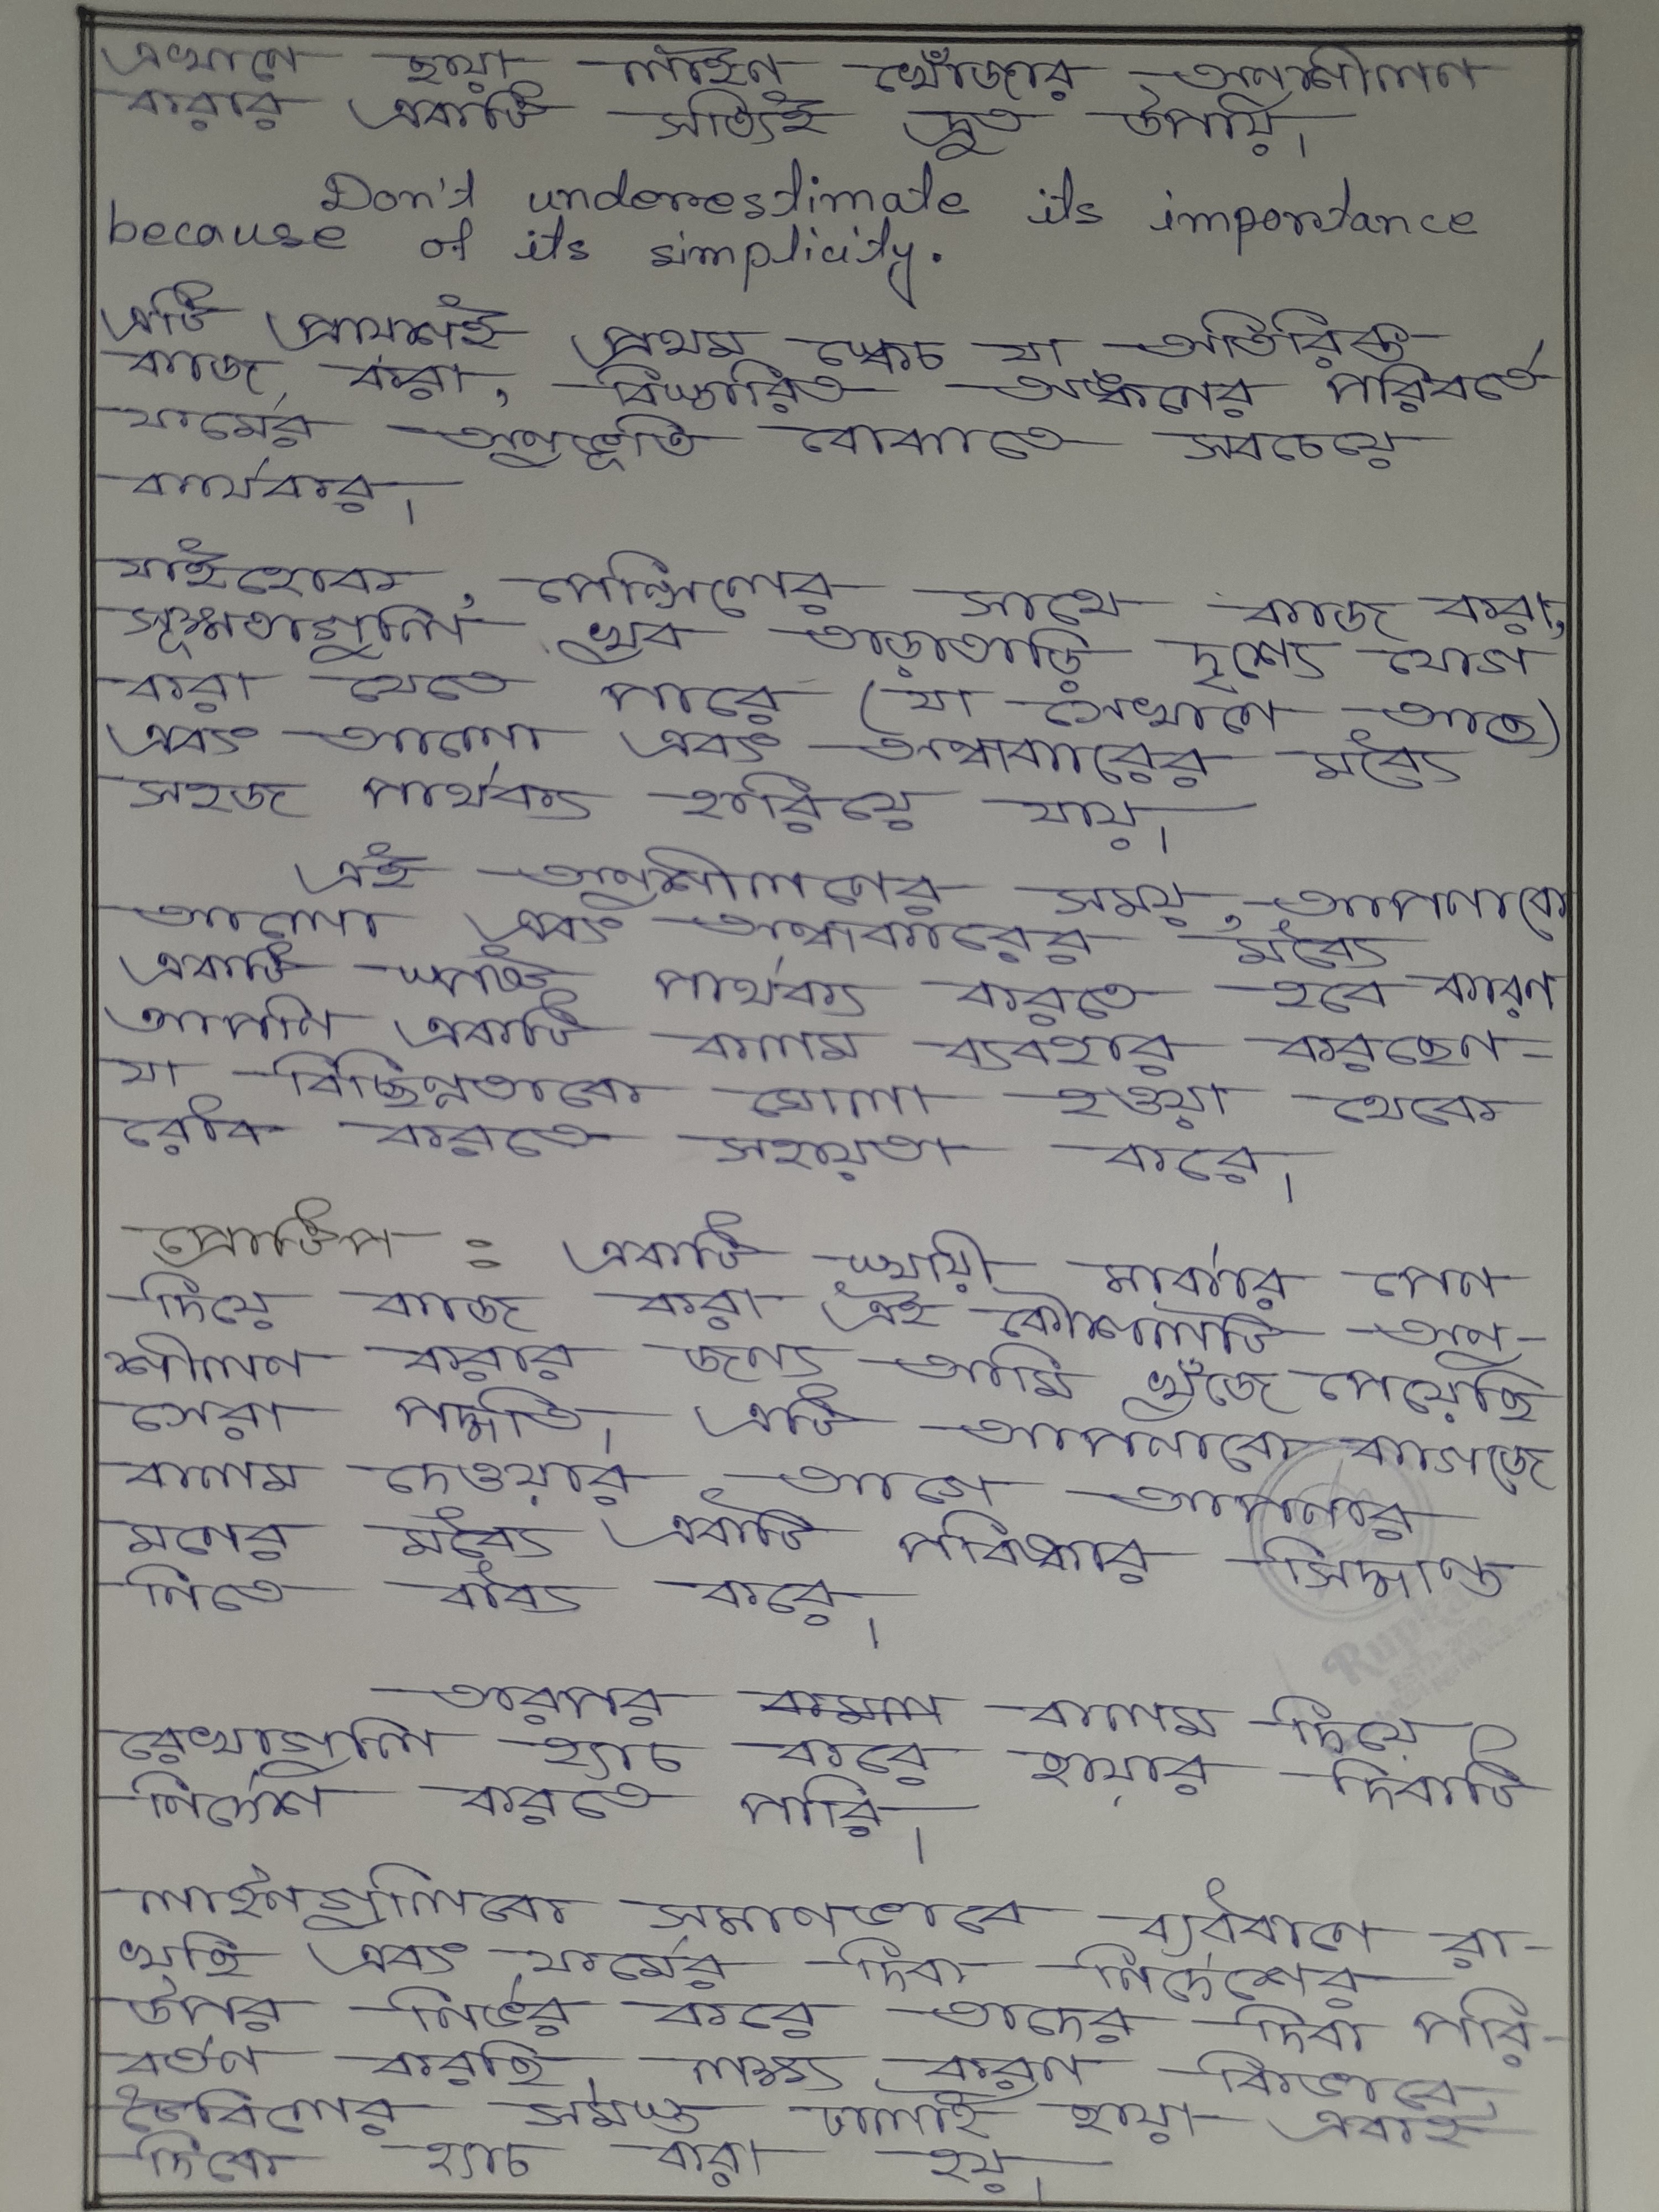 এখানে ছায়া লাইন খোঁজার অনুশীলন
করার একটি সত্যিই দ্রুত উপায়।
Don't underestimate its importance
because of its simplicity.
এটি প্রায়শই প্রথম স্কেচ যা অতিরিক্ত
কাজ করা, বিস্তারিত অঙ্কনের পরিবর্তে
ফর্মের অনুভূতি বোঝাতে সবচেয়ে
কার্যকর।
যাইহোক, পেন্সিলের সাথে কাজ করা,
সূক্ষ্মতাগুলি খুব তাড়াতাড়ি দৃশ্যে যোগ
করা যেতে পারে (যা সেখানে আছে)
এবং আলো এবং অন্ধকারের মধ্যে
সহজ পার্থক্য হারিয়ে যায়।
এই অনুশীলনের সময়, আপনাকে
আলো এবং অন্ধকারের মধ্যে
একটি স্পষ্ট পার্থক্য করতে হবে কারণ
আপনি একটি কলম ব্যবহার করছেন-
যা বিচ্ছিন্নতাকে ঘোলা হওয়া থেকে
রোধ করতে সহায়তা করে।
প্রোটিপ : একটি স্থায়ী মার্কার পেন
দিয়ে কাজ করা এই কৌশলটি অনু-
শীলন করার জন্য আমি খুঁজে পেয়েছি
সেরা পদ্ধতি। এটি আপনাকে কাগজে
কলম দেওয়ার আগে আপনার
মনের মধ্যে একটি পরিষ্কার সিদ্ধান্ত
নিতে বাধ্য করে।
তারপর কলম দিয়ে
রেখাগুলি হ্যাচ করে ছায়ার দিকটি
নির্দেশ করতে পারি।
লাইনগুলিকে সমানভাবে ব্যবধানে রা-
খছি এবং ফর্মের দিক নির্দেশের
উপর নির্ভর করে তাদের দিক পরি-
বর্তন করছি, লক্ষ্য করুন কিভাবে,
টেবিলের সমস্ত ঢালাই ছায়া একই
দিকে হ্যাচ করা হয়।